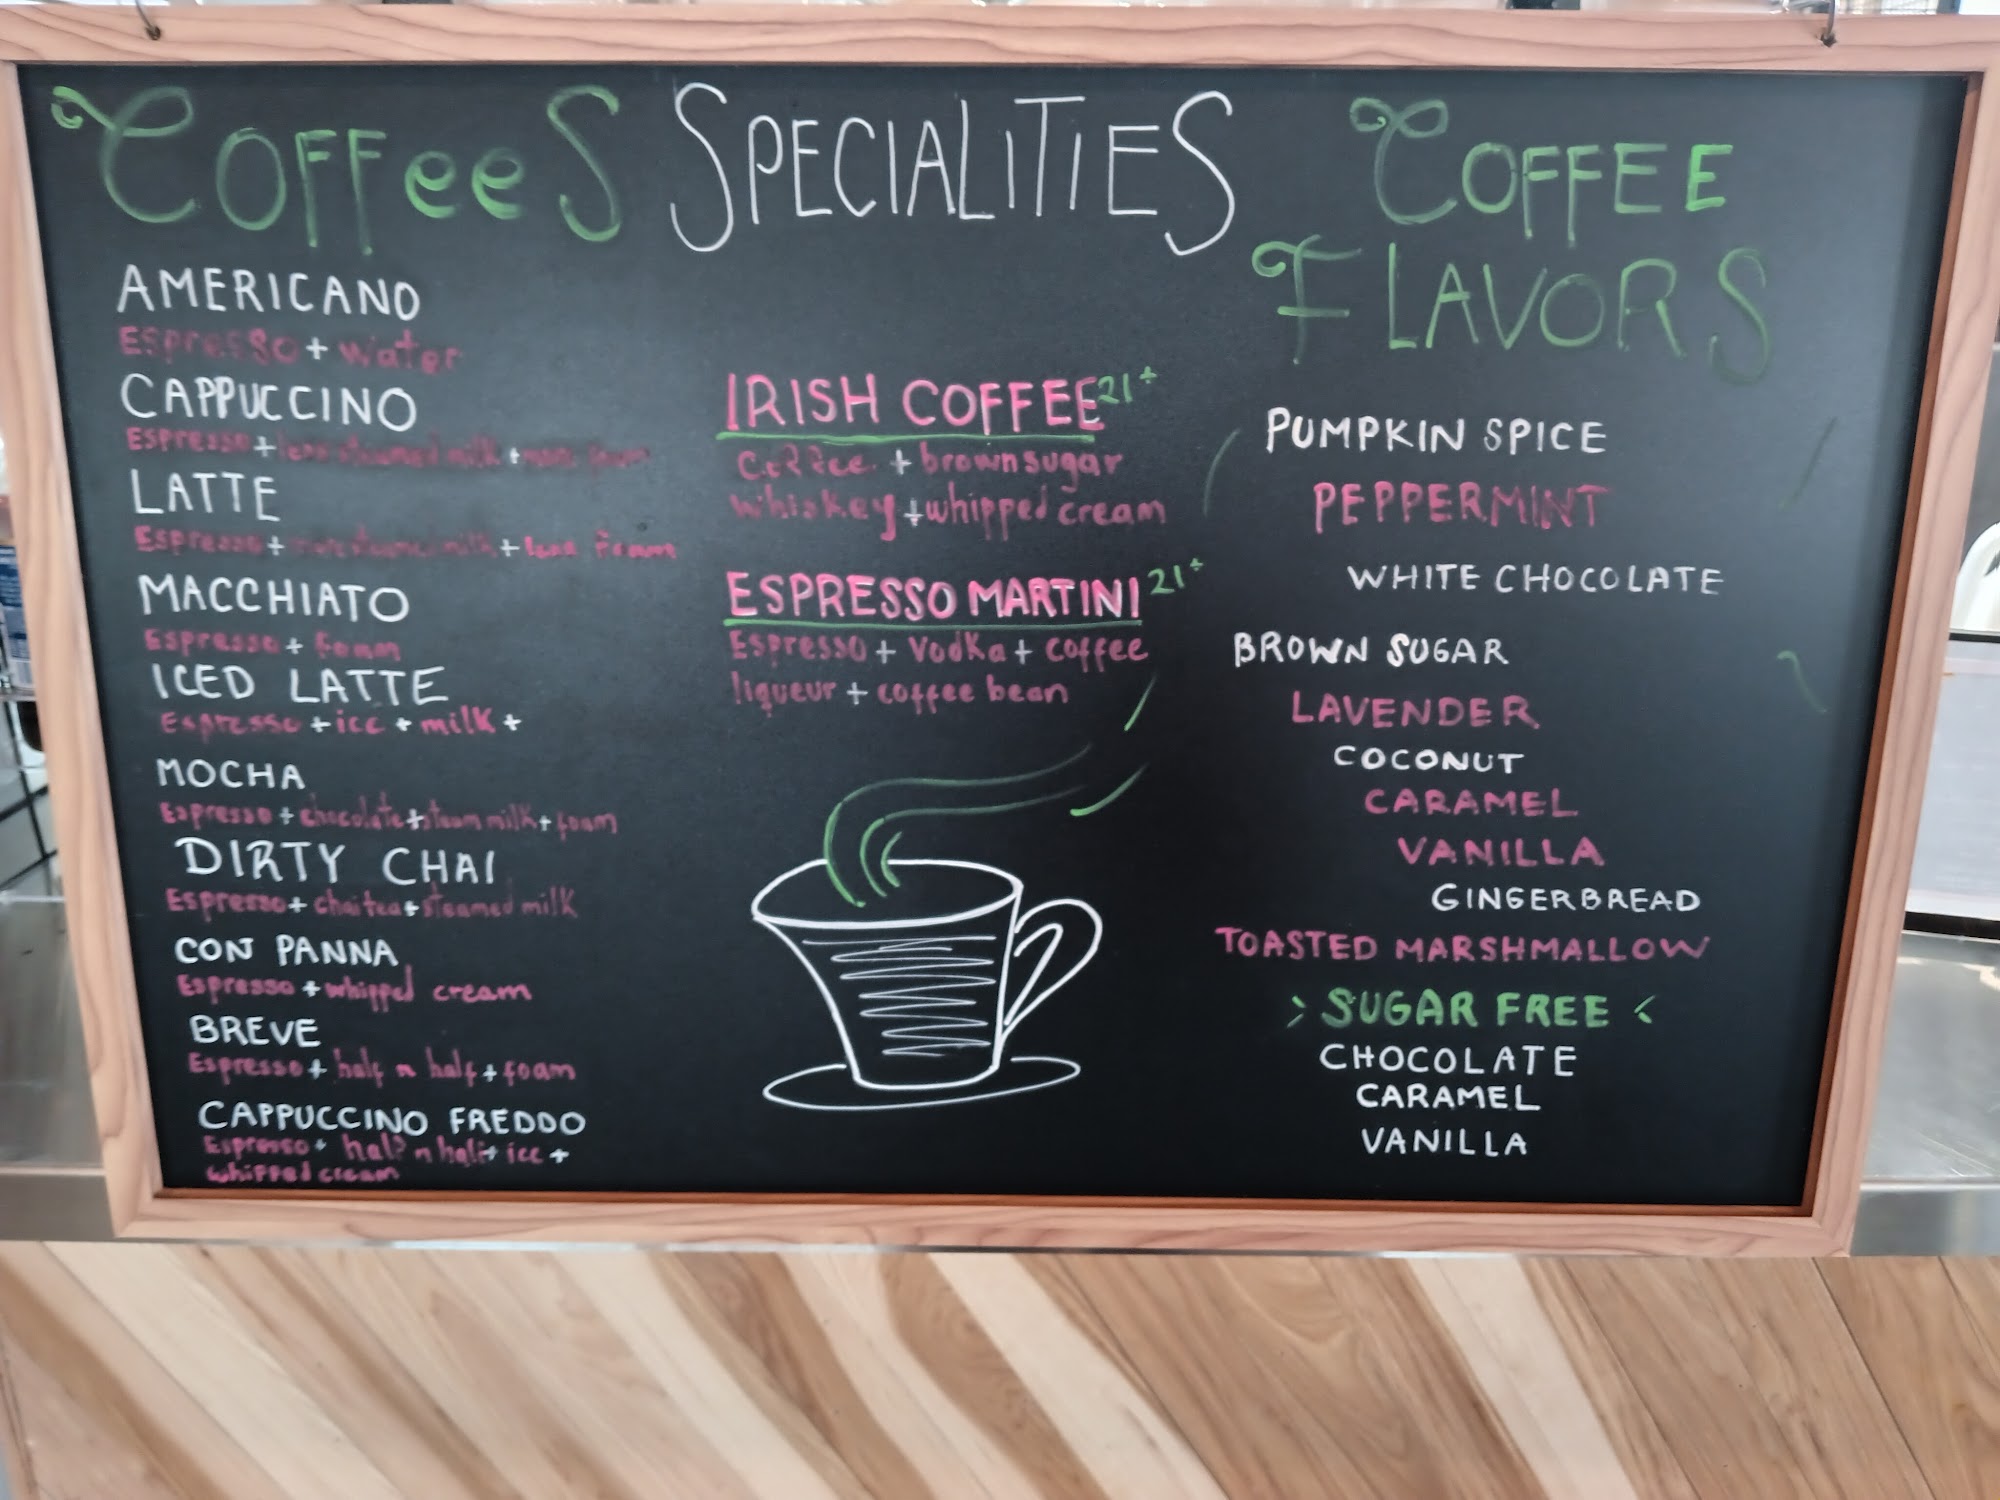 CoffeeS
AMERICANO
Espresso + water
CAPPUCCINO
Espresso + less steamed milk + more foam
LATTE
Espresso + more steamed milk + less foam
MACCHIATO
Espresso + foam
ICED LATTE
Espresso + ice + milk +
MOCHA
Espresso + chocolate + steam milk + foam
DIRTY CHAI
Espresso + chai tea + steamed milk
CON PANNA
Espresso + whipped cream
BREVE
Espresso + half n half + foam
CAPPUCCINO FREDDO
Espresso + half n half + ice +
whipped cream
SPECIALITIES
IRISH COFFEE 21+
Coffee + brown sugar
whiskey + whipped cream
ESPRESSO MARTINI 21+
Espresso + Vodka + coffee
liqueur + coffee bean
COFFEE
FLAVORS
PUMPKIN SPICE
PEPPERMINT
WHITE CHOCOLATE
BROWN SUGAR
LAVENDER
COCONUT
CARAMEL
VANILLA
GINGERBREAD
TOASTED MARSHMALLOW
> SUGAR FREE <
CHOCOLATE
CARAMEL
VANILLA